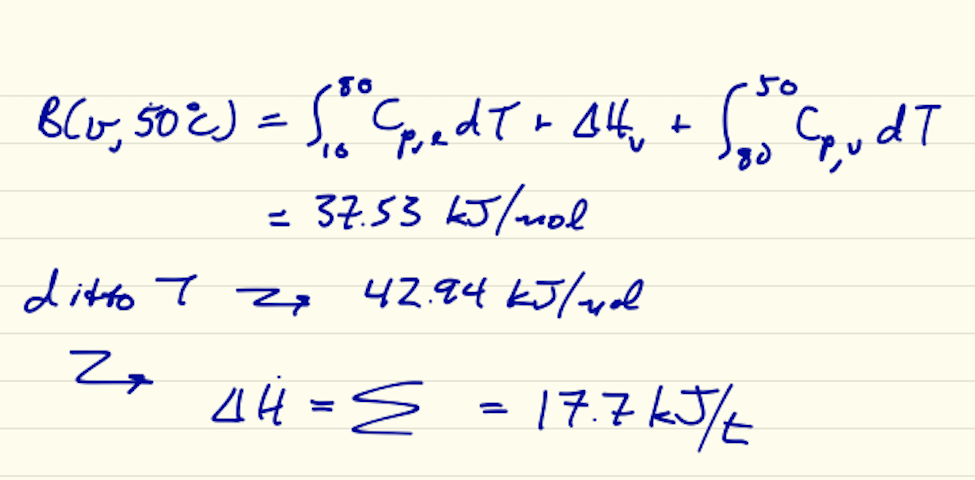 B(v, 50°C) = ∫₁₀⁸⁰ C_{p,l} dT + ΔH_v + ∫₈₀⁵⁰ C_{p,v} dT
= 37.53 kJ/mol
ditto T → 42.94 kJ/mol
→ ΔḢ = Σ = 17.7 kJ/t